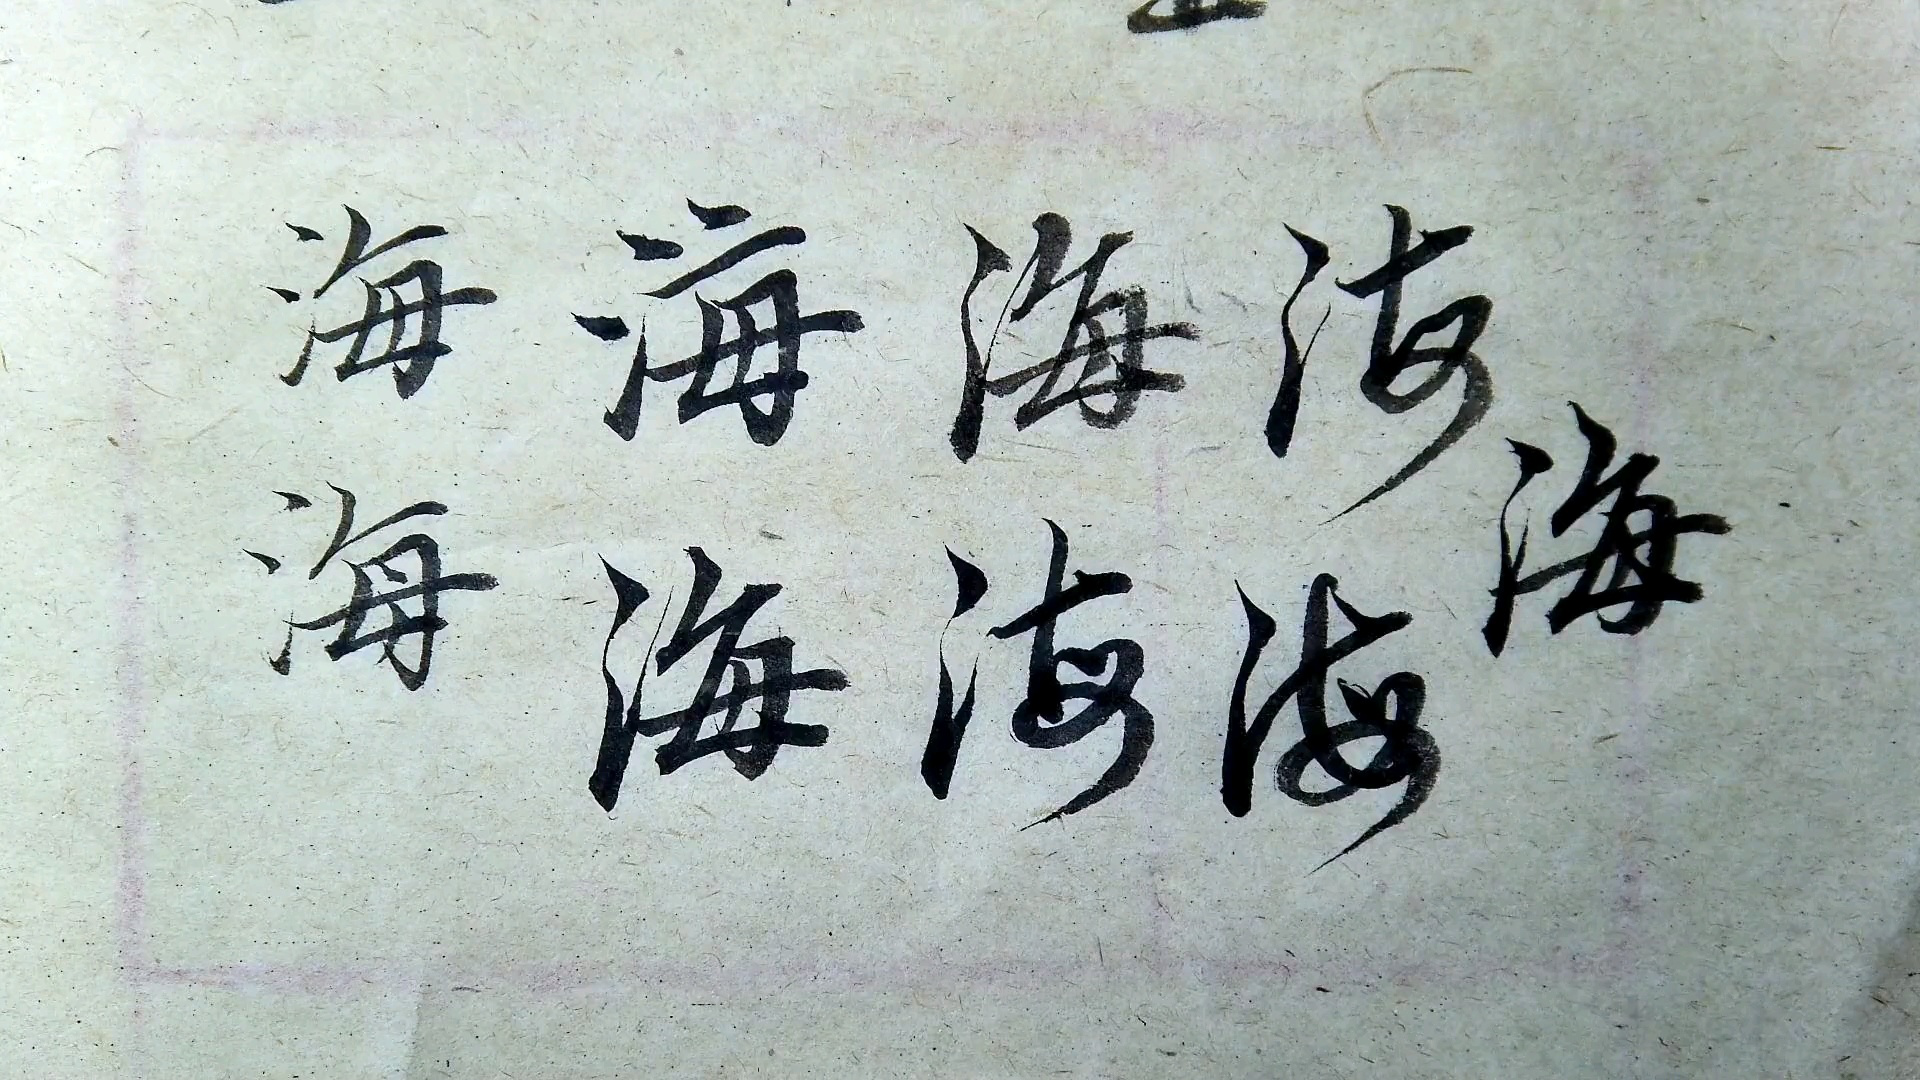 海海海海
海
海海海海